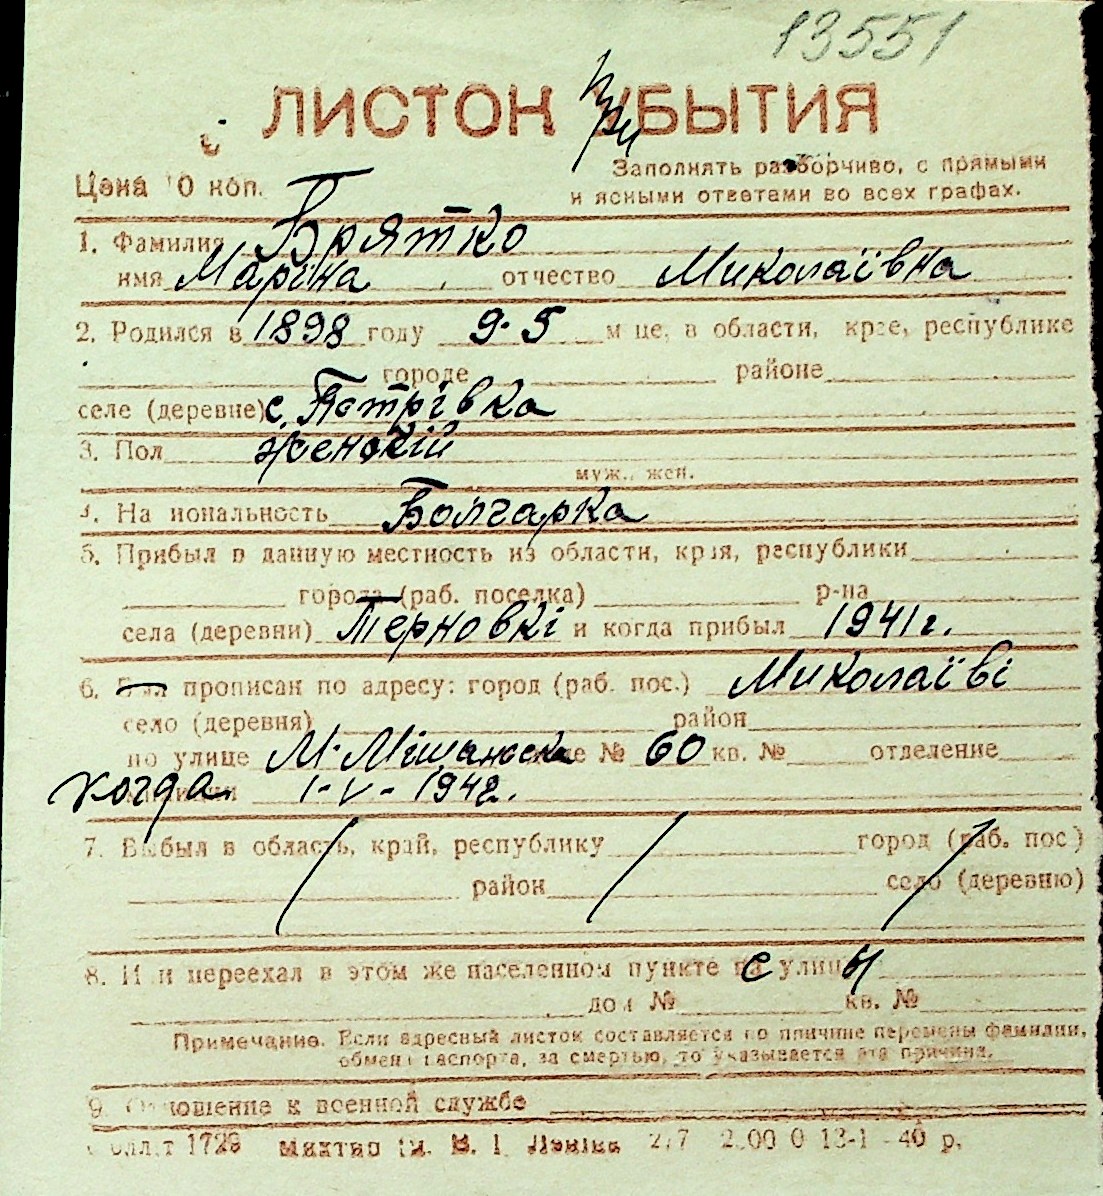 13551
ЛИСТОК УБЫТИЯ
при
Заполнять разборчиво, с прямыми
Цена 10 коп.
и ясными ответами во всех графах.
1. Фамилия Брятко
имя Маріна отчество Миколаївна
2. Родился в 1898 году 9.5 м-це, в области, крае, республике
городе районе
селе (деревне) с. Петрівка
3. Пол женскій
муж., жен.
4. Национальность Болгарка
5. Прибыл в данную местность из области, края, республики
города (раб. поселка) р-на
села (деревни) Терновкі и когда прибыл 1941 г.
6. Был прописан по адресу: город (раб. пос.) Миколаїві
село (деревня) район
по улице М. Мішанська № 60 кв. № отделение
когда 1-V-1942.
7. Выбыл в область, край, республику город (раб. пос.)
район село (деревню)
8. Или переехал в этом же населенном пункте с улицы
дом № кв. №
Примечание. Если адресный листок составляется по причине перемены фамилии,
обмена паспорта, за смертью, то указывается эта причина.
9. Отношение к военной службе
1729 В. І. Леніна 2/7 13-1 40 р.